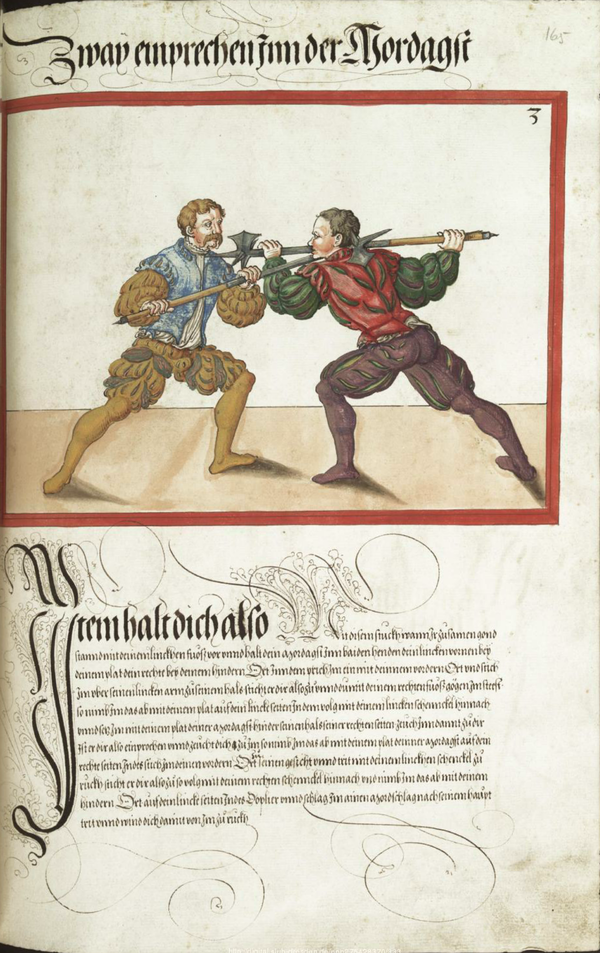 165
Zway einprechen Inn der Mordagst
3
Item halt dich also In disem stuckh wann Ir zusamen gond
stannd mit deinem linckhen fuoß vor vnnd halt dein mordagst inn baiden henden dein lincken vornen bey
deinem plat dein rechte bey deinem hindern Ort Inn dem prich Im ein mit deinnem vordern Ort vnd stich
Im yber seinen lincken arm zu seinem hals sticht er dir also zu vnnd mit deinem rechten fuoß gögen Im steest
so nimb Im das ab mit deinem plat auf sein linckh seitten In dem volg mit deinem lincken schennckel hinnach
vnnd setz Im mit deinem plat deiner mordagst hinder seinen hals seiner rechten seitten zeuch Inn damit zu dir
Ist er dir also einprochen vnnd zeucht dich zu Im so nimb Im das ab mit deinem plat deinner mordagst auf dein
rechte seitten Indes stich Im deinen vordern Ort Inn seinen gesicht vnnd trit mit deinem linckhen schenckel zu
ruckh sticht er dir also zu so volg mit deinem rechten schennckel hinnach vnnd nimb Im das ab mit deinem
hindern Ort auf dein linckh seitten Indes Doplier vnnd schlag Im ainen mordschlag nach seinem haupt
trit vnnd wind dich damit von Im zu ruckh